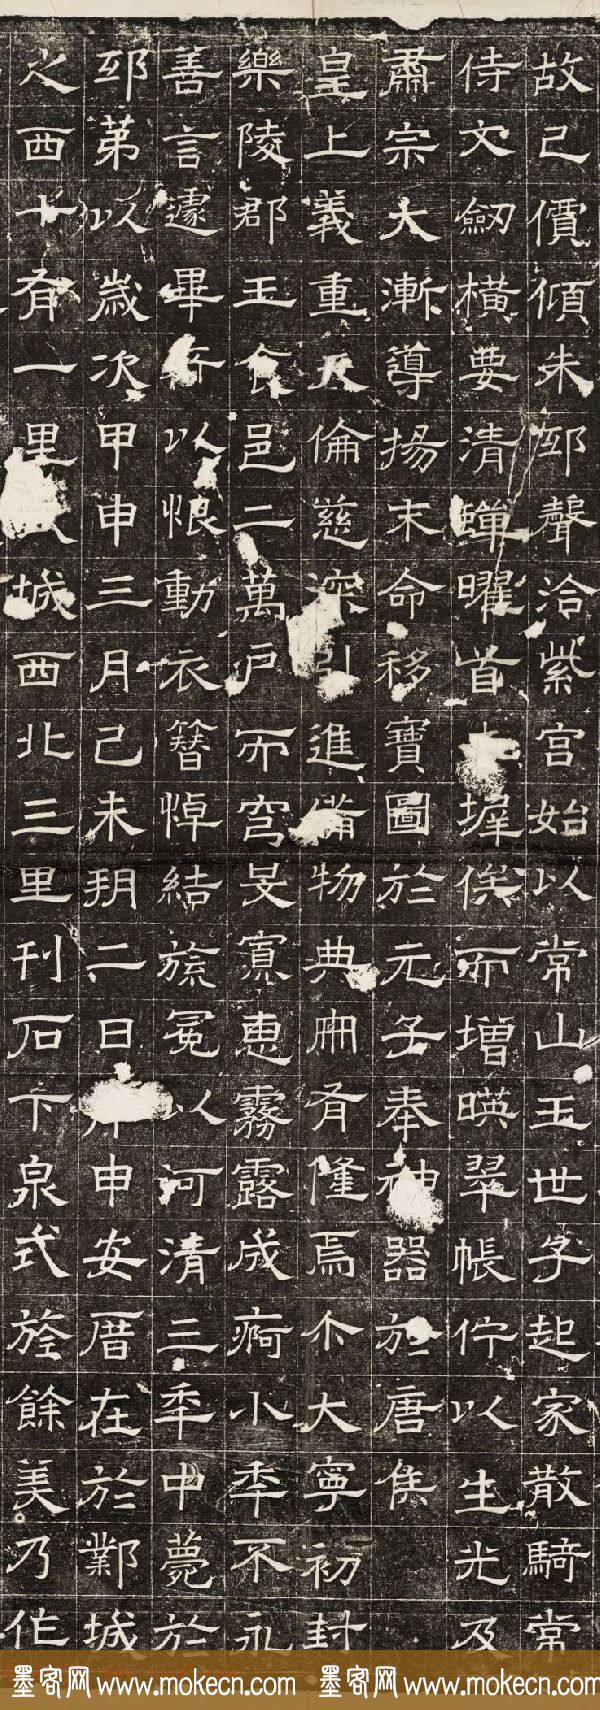 故己價傾朱邸聲洽紫宮始以常山王世子起家散騎常
侍文劒橫要清蟬曜首墀俟而增暎翠帳佇以生光及
肅宗大漸導揚末命移寶圖於元子奉神器於唐侯
皇上義重天倫慈深引進備物典冊有隆焉尒大寧初封
樂陵郡王食邑二萬戶而穹旻寡惠霧露成痾小年不永
善言遽畢以恨動衣簪悼結旒冕以河清三年中薨於
邸苐以歲次甲申三月己未朔二日申安厝在於鄴城
之西十有一里城西北三里刊石下泉式旌餘美乃作
墨客网 www.mokecn.com 墨客网 www.mokecn.com